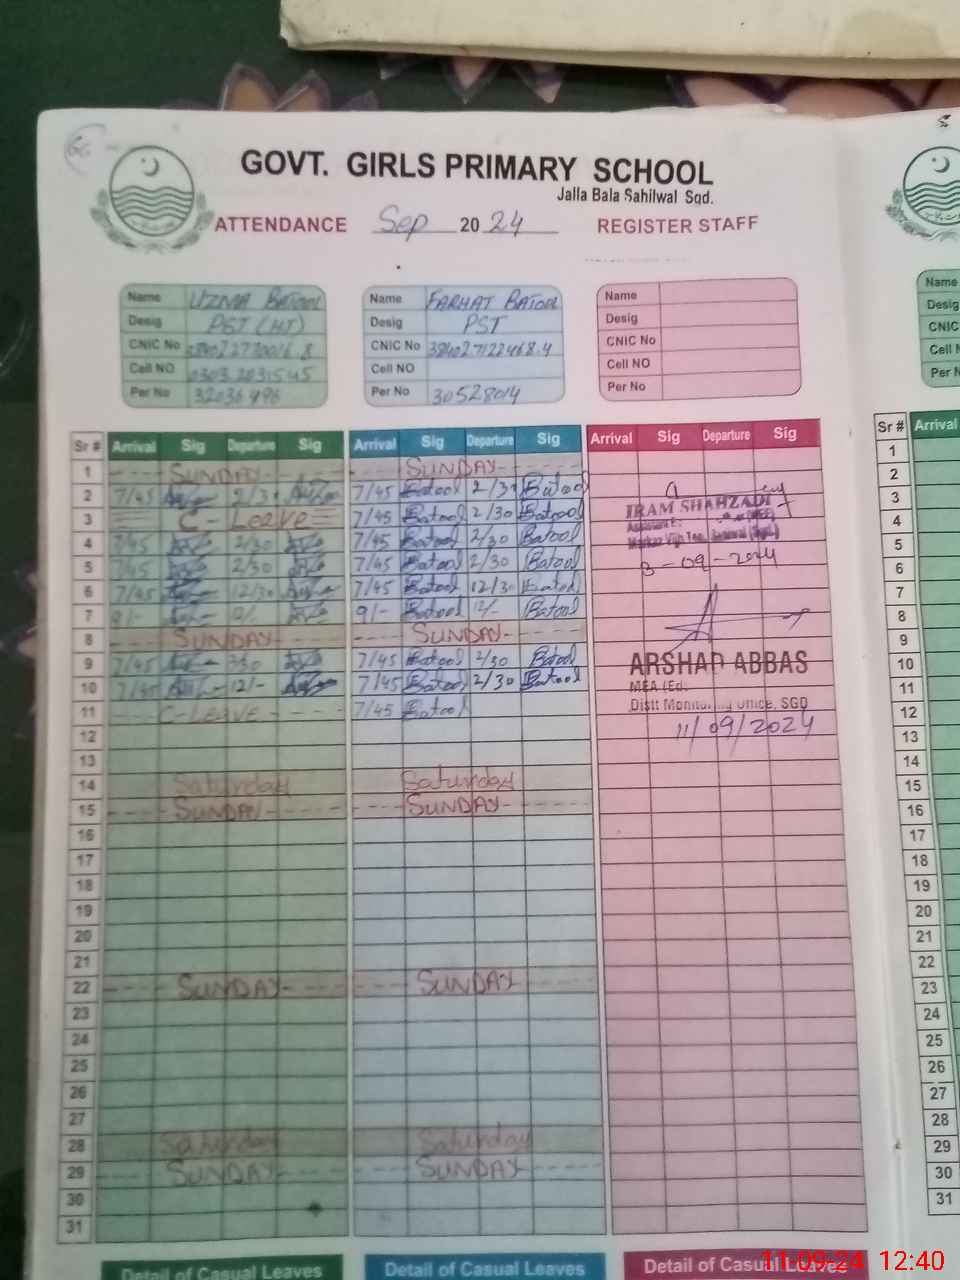 GOVT. GIRLS PRIMARY SCHOOL
Jalla Bala Sahilwal Sgd.
ATTENDANCE Sep 2024 REGISTER STAFF
Name UZMA BATOOL Name FARHAT BATOOL Name Name
Desig PST (HT) Desig PST Desig Desig
CNIC No CNIC No 384027122468.4 CNIC No CNIC
Cell NO Cell NO Cell NO Cell
Per No 32036496 Per No 30528014 Per No Per N
Sr # Arrival Sig Departure Sig Arrival Sig Departure Sig Arrival Sig Departure Sig Sr # Arrival
1 SUNDAY SUNDAY 1
2 7/45 2/30 7/45 Batool 2/30 Batool 2
3 C-Leave 7/45 Batool 2/30 Batool IRAM SHAHZADI 3
4 7/45 2/30 7/45 Batool 2/30 Batool 4
5 7/45 2/30 7/45 Batool 2/30 Batool 3-09-2024 5
6 7/45 12/30 7/45 Batool 12/30 Batool 6
7 9/- 12/- 9/- Batool 12/- Batool 7
8 SUNDAY SUNDAY 8
9 7/45 2/30 7/45 Batool 2/30 Batool ARSHAD ABBAS 9
10 7/45 12/- 7/45 Batool 2/30 Batool MEA (Ed. 10
11 C-LEAVE 7/45 Batool Distt Monitoring Office, SGD 11
12 11/09/2024 12
13 13
14 Saturday Saturday 14
15 SUNDAY SUNDAY 15
16 16
17 17
18 18
19 19
20 20
21 21
22 SUNDAY SUNDAY 22
23 23
24 24
25 25
26 26
27 27
28 Saturday Saturday 28
29 SUNDAY SUNDAY 29
30 30
31 31
Detail of Casual Leaves Detail of Casual Leaves Detail of Casual Leaves
11-09-24 12:40